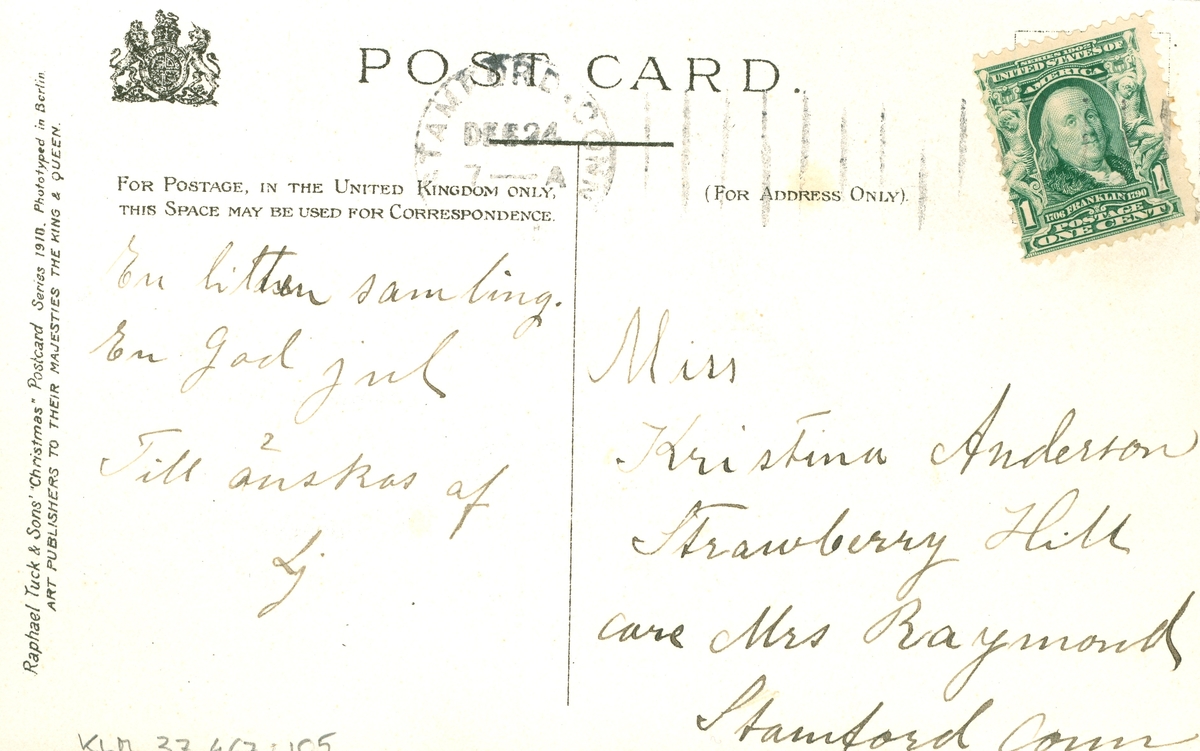 POST CARD.
STAMFORD, CONN.
DEC 24
7 — A
SERIES 1902
UNITED STATES OF
AMERICA
1 1
1706 FRANKLIN 1790
POSTAGE
ONE CENT
FOR POSTAGE, IN THE UNITED KINGDOM ONLY,
THIS SPACE MAY BE USED FOR CORRESPONDENCE.
(FOR ADDRESS ONLY).
En litten samling.
En God jul
Till önskas af
Miss
Kristina Anderson
Strawberry Hill
care Mrs Raymond
Stamford Conn
Raphael Tuck & Sons' "Christmas" Postcard Series Phototyped in Berlin.
ART PUBLISHERS TO THEIR MAJESTIES THE KING & QUEEN.